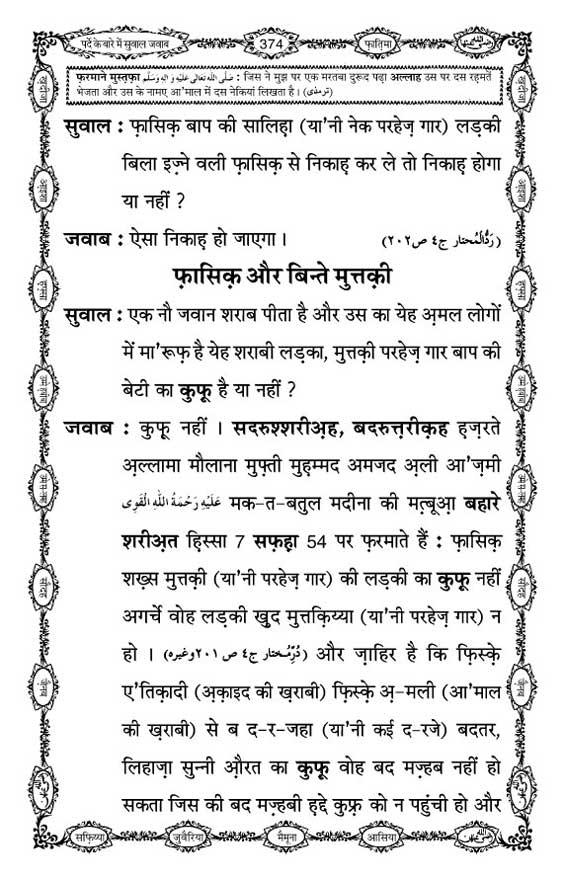 पर्दे के बारे में सुवाल जवाब 374 फ़ातिमा
फ़रमाने मुस्तफ़ा صَلَّى اللهُ تَعَالٰى عَلَيْهِ وَاٰلِهٖ وَسَلَّم : जिस ने मुझ पर एक मरतबा दुरूद पढ़ा अल्लाह उस पर दस रहमतें
भेजता और उस के नामए आ'माल में दस नेकियां लिखता है। (ترمذی)
सुवाल : फ़ासिक़ बाप की सालिहा (या'नी नेक परहेज़ गार) लड़की
बिला इज़्ने वली फ़ासिक़ से निकाह कर ले तो निकाह होगा
या नहीं ?
जवाब : ऐसा निकाह हो जाएगा। (رَدُّالْمُحتار ج٤ ص٢٠٢)
फ़ासिक़ और बिन्ते मुत्तक़ी
सुवाल : एक नौ जवान शराब पीता है और उस का येह अ़मल लोगों
में मा'रूफ़ है येह शराबी लड़का, मुत्तक़ी परहेज़ गार बाप की
बेटी का कुफ़ू है या नहीं ?
जवाब : कुफ़ू नहीं । सदरुश्शरीअ़ह, बदरुत्त़रीक़ह हज़रते
अ़ल्लामा मौलाना मुफ़्ती मुह़म्मद अमजद अ़ली आ'ज़मी
عَلَيْهِ رَحْمَةُ اللهِ الْقَوِى मक-त-बतुल मदीना की मत़्बूआ़ बहारे
शरीअ़त हिस्सा 7 सफ़हा 54 पर फ़रमाते हैं : फ़ासिक़
शख़्स मुत्तक़ी (या'नी परहेज़ गार) की लड़की का कुफ़ू नहीं
अगर्चे वोह लड़की ख़ुद मुत्तक़िय्या (या'नी परहेज़ गार) न
हो । (دُرِّمُختار ج٤ ص ٢٠١ وغیرہ) और ज़ाहिर है कि फ़िस्क़े
ए'तिक़ादी (अ़क़ाइद की ख़राबी) फ़िस्क़े अ़-मली (आ'माल
की ख़राबी) से ब द-र-जहा (या'नी कई द-रजे) बदतर,
लिहाज़ा सुन्नी औ़रत का कुफ़ू वोह बद मज़्हब नहीं हो
सकता जिस की बद मज़्हबी हद्दे कुफ़्र को न पहुंची हो और
सफ़िय्या जुवैरिया मैमूना आसिया